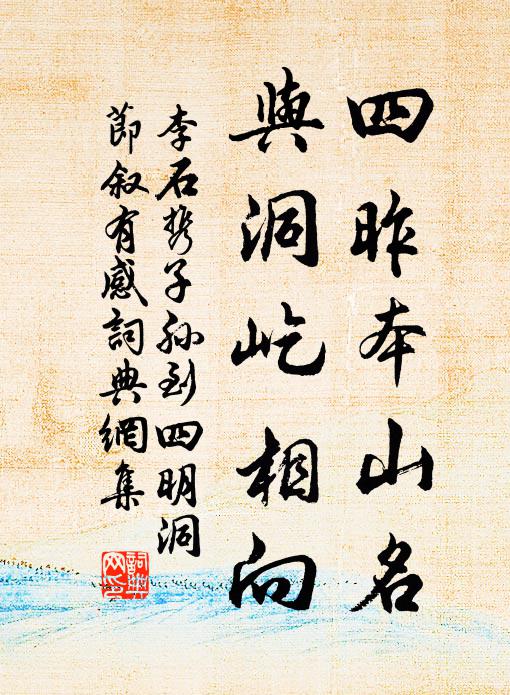 四昨本山名
與洞屹相向
李石携子孫到四明洞
節叙有感詞典網集